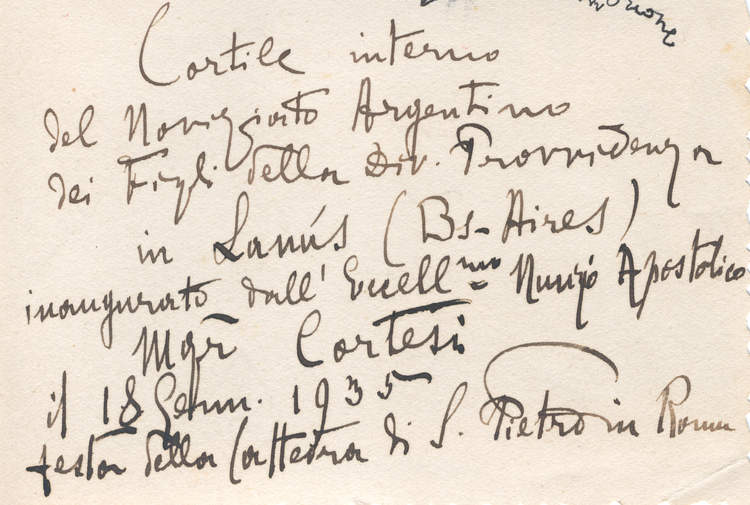 Cortile interno
del Noviziato Argentino
dei Figli della Div. Provvidenza
in Lanús (Bs-Aires)
inaugurato dall' Eccell.mo Nunzio Apostolico
Mgr Cortesi
il 18 Genn. 1935
festa della Cattedra di S. Pietro in Roma